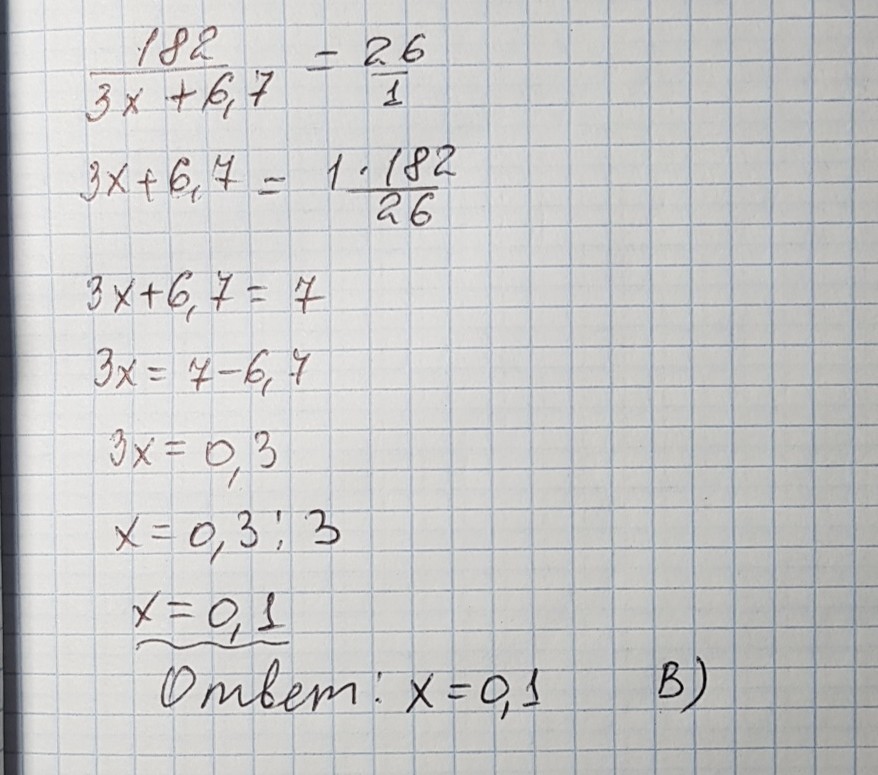 182/(3x+6,7) = 26/1
3x+6,7 = 1·182/26
3x+6,7 = 7
3x = 7-6,7
3x = 0,3
x = 0,3:3
x = 0,1
Ответ: x=0,1 В)